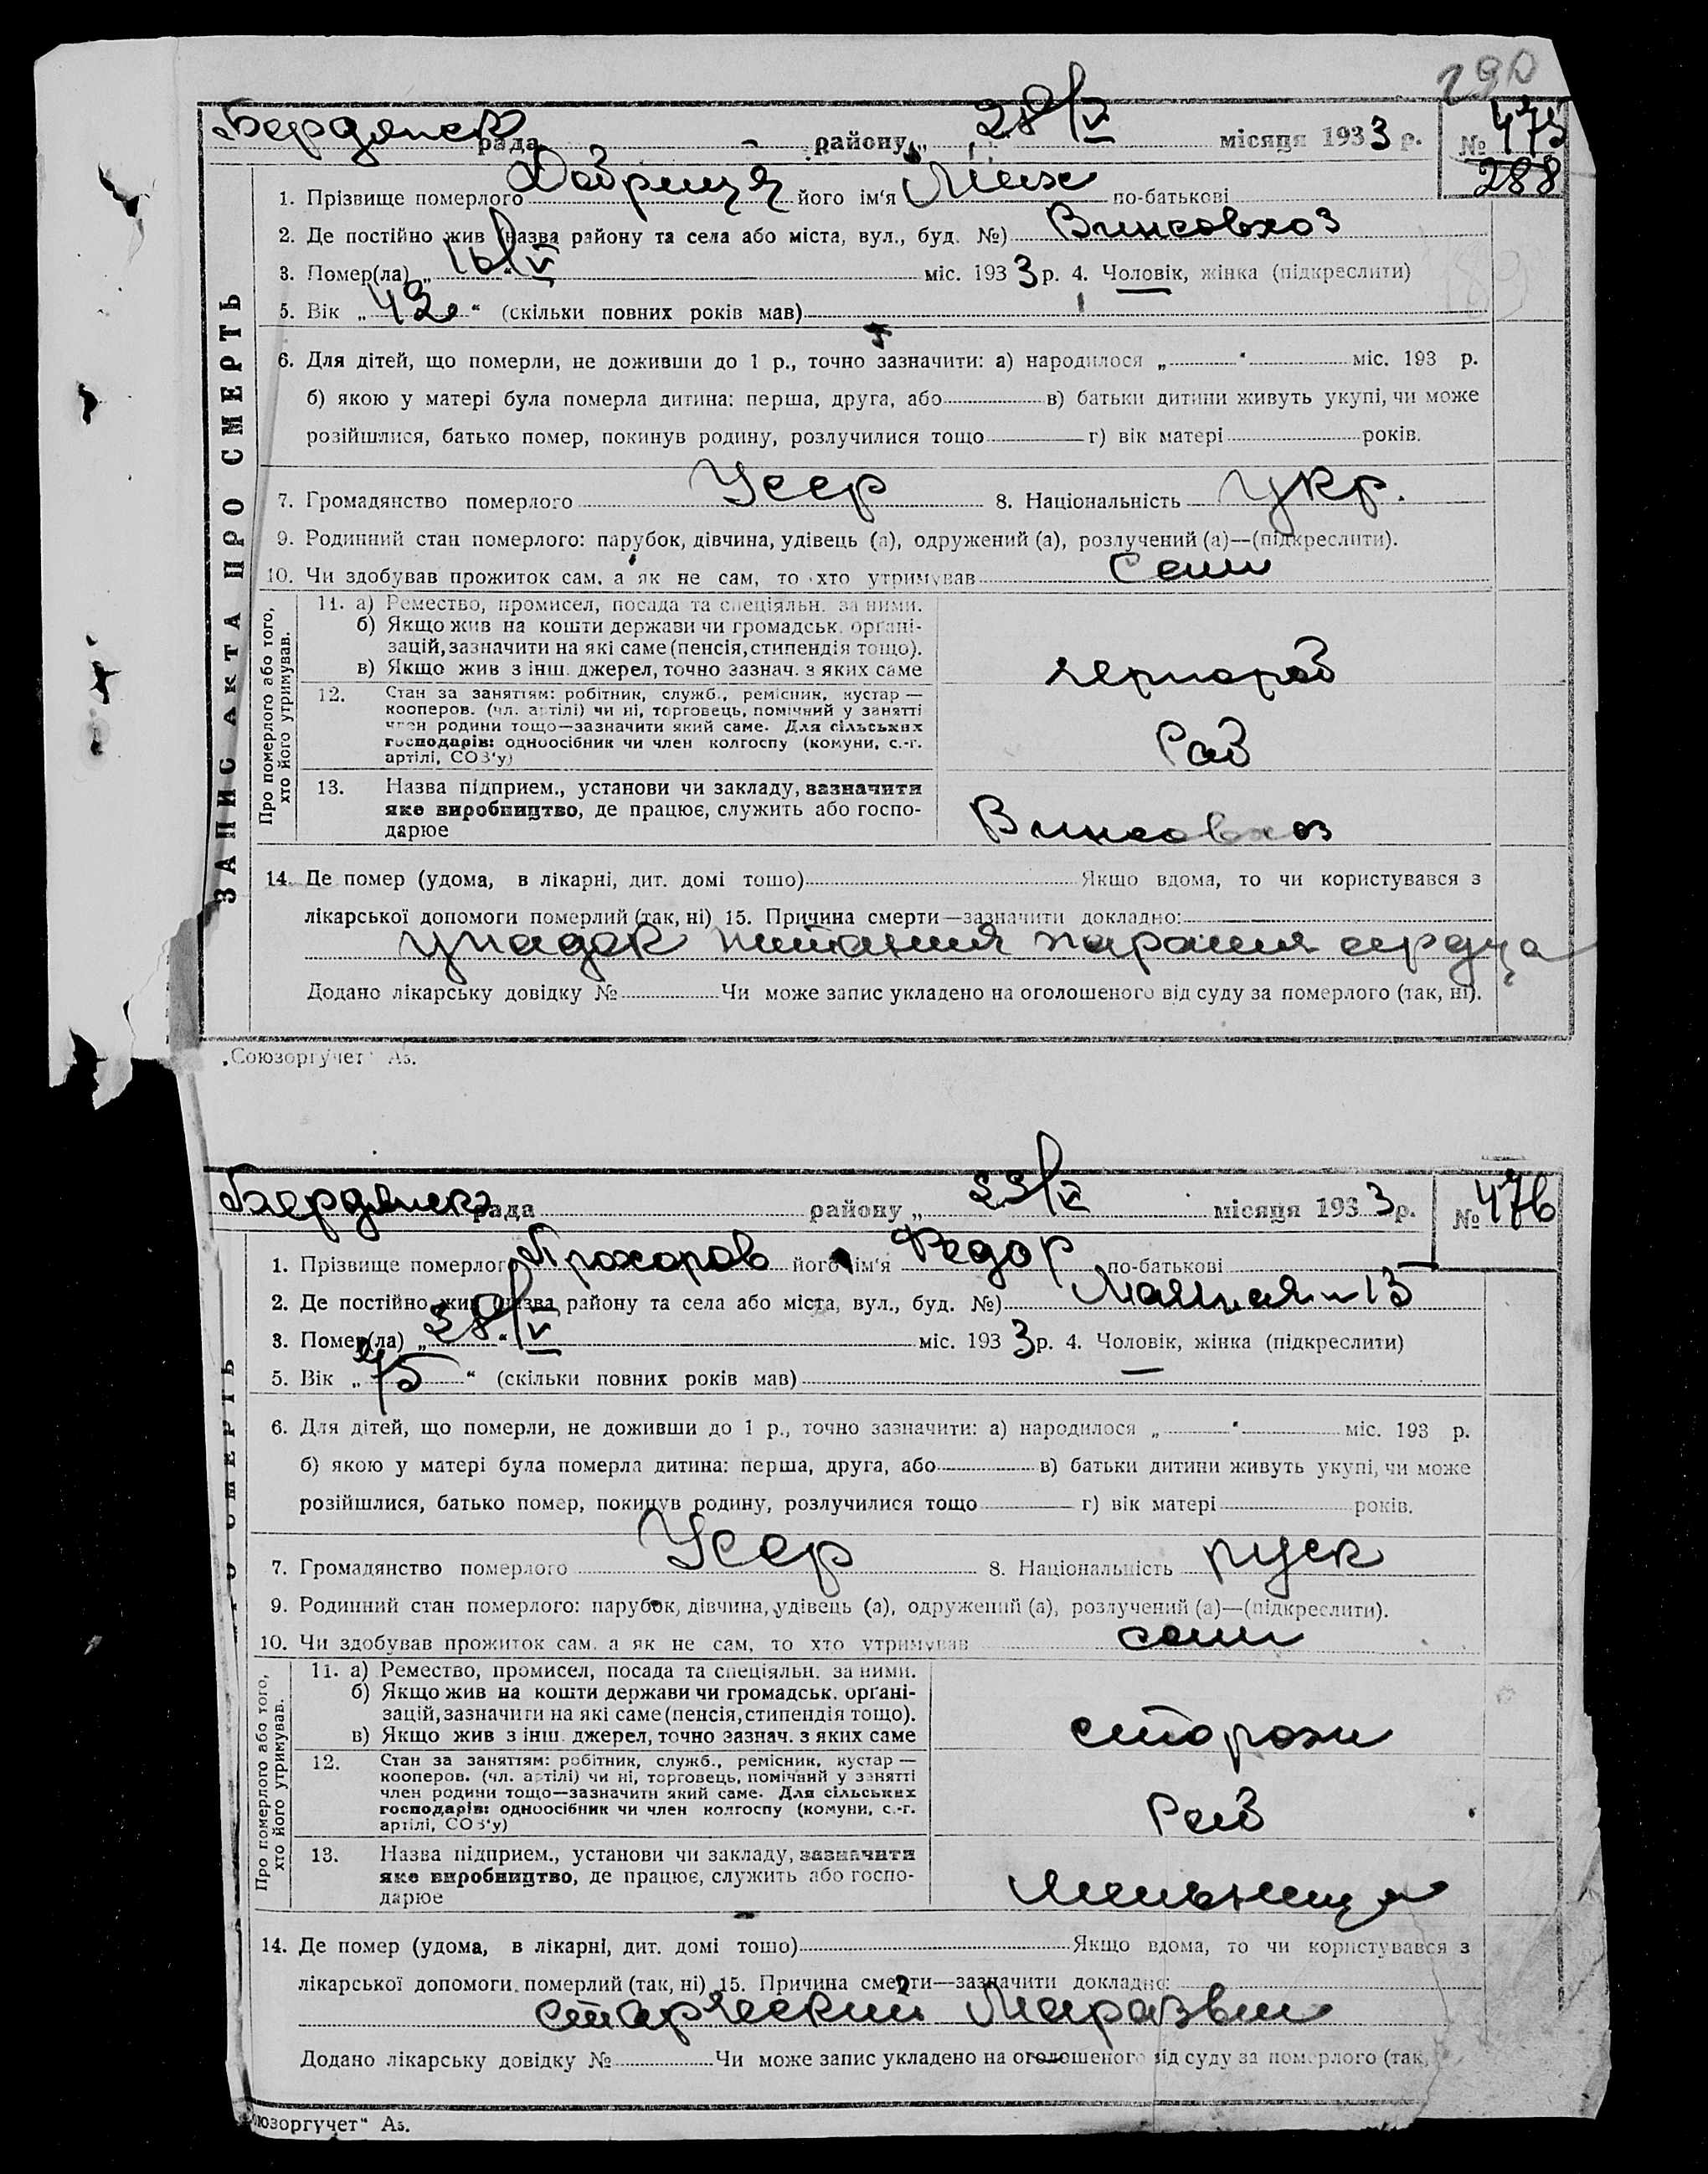 290
Бердянск рада районy „ 28/V місяця 1933 р. № 475
288
ЗАПИС АКТА ПРО СМЕРТЬ
1. Прізвище померлого його ім'я Мих по-батькові
2. Де постійно жив (назва району та села або міста, вул., буд. №) Винсовхоз
3. Помер(ла) „16/V“ міс. 1933 р. 4. Чоловік, жінка (підкреслити)
5. Вік „ “ (скільки повних років мав)
6. Для дітей, що померли, не доживши до 1 р., точно зазначити: а) народилося „ “ міс. 193 р.
б) якою у матері була померла дитина: перша, друга, або в) батьки дитини живуть укупі, чи може
розійшлися, батько помер, покинув родину, розлучилися тощо г) вік матері років.
7. Громадянство померлого Усср 8. Національність укр.
9. Родинний стан померлого: парубок, дівчина, удівець (а), одружений (а), розлучений (а)—(підкреслити).
10. Чи здобував прожиток сам, а як не сам, то хто утримував сам
Про померлого або того, хто його утримував.
11. а) Ремество, промисел, посада та спеціяльн. за ними.
б) Якщо жив на кошти держави чи громадськ. органі-
зацій, зазначити на які саме (пенсія, стипендія тощо).
в) Якщо жив з інш. джерел, точно зазнач. з яких саме
чернораб
12. Стан за заняттям: робітник, служб., ремісник, кустар —
кооперов. (чл. артілі) чи ні, торговець, помічний у занятті
член родини тощо—зазначити який саме. Для сільських
господарів: одноосібник чи член колгоспу (комуни, с.-г.
артілі, СОЗ'у)
Раб
13. Назва підприєм., установи чи закладу, зазначити
яке виробництво, де працює, служить або госпо-
дарює
Винсовхоз
14. Де помер (удома, в лікарні, дит. домі тощо) Якщо вдома, то чи користувався з
лікарської допомоги померлий (так, ні) 15. Причина смерти—зазначити докладно:
упадок питания паралич сердца
Додано лікарську довідку № Чи може запис укладено на оголошеного від суду за померлого (так, ні).
„Союзоргучет“ Аз.
Бердянск рада району „ 29/V місяця 1933 р. № 476
1. Прізвище померлого Прохоров його ім'я Федор по-батькові
2. Де постійно жив (назва району та села або міста, вул., буд. №) 15
3. Помер(ла) „28/V“ міс. 1933 р. 4. Чоловік, жінка (підкреслити)
5. Вік „75“ (скільки повних років мав)
СМЕРТЬ
6. Для дітей, що померли, не доживши до 1 р., точно зазначити: а) народилося „ “ міс. 193 р.
б) якою у матері була померла дитина: перша, друга, або в) батьки дитини живуть укупі, чи може
розійшлися, батько помер, покинув родину, розлучилися тощо г) вік матері років.
7. Громадянство померлого Усср 8. Національність руск
9. Родинний стан померлого: парубок, дівчина, удівець (а), одружений (а), розлучений (а)—(підкреслити).
10. Чи здобував прожиток сам, а як не сам, то хто утримував сам
Про померлого або того, хто його утримував.
11. а) Ремество, промисел, посада та спеціяльн. за ними.
б) Якщо жив на кошти держави чи громадськ. органі-
зацій, зазначити на які саме (пенсія, стипендія тощо).
в) Якщо жив з інш. джерел, точно зазнач. з яких саме
сторож
12. Стан за заняттям: робітник, служб., ремісник, кустар —
кооперов. (чл. артілі) чи ні, торговець, помічний у занятті
член родини тощо—зазначити який саме. Для сільських
господарів: одноосібник чи член колгоспу (комуни, с.-г.
артілі, СОЗ'у)
Раб
13. Назва підприєм., установи чи закладу, зазначити
яке виробництво, де працює, служить або госпо-
дарює
Мельница
14. Де помер (удома, в лікарні, дит. домі тощо) Якщо вдома, то чи користувався з
лікарської допомоги померлий (так, ні) 15. Причина смерти—зазначити докладно:
старческий Маразым
Додано лікарську довідку № Чи може запис укладено на оголошеного від суду за померлого (так,
юзоргучет“ Аз.